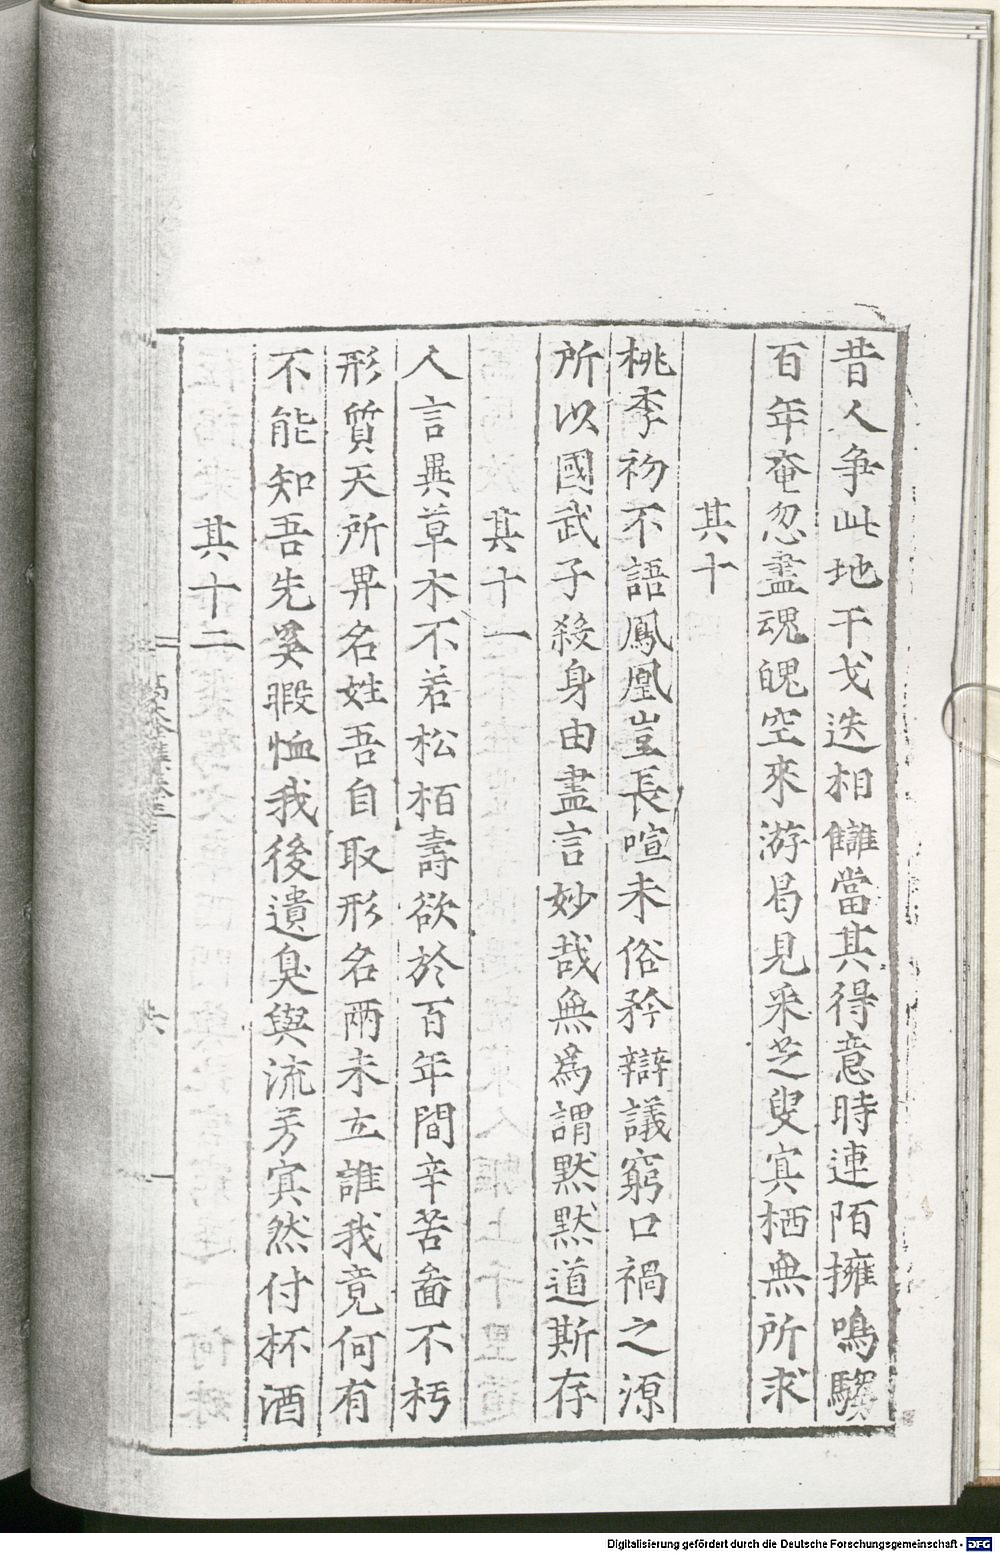 昔人争此地干戈迭相讎當其得意時連陌擁鳴騶
百年奄忽盡魂魄空來游曷見采芝叟寘栖無所求
其十
桃李初不語鳳凰豈長喧末俗矜辯議窮口禍之源
所以國武子殺身由盡言妙哉無為謂默默道斯存
其十一
人言異草木不若松栢壽欲於百年間辛苦啚不朽
形質天所畀名姓吾自取形名兩未立誰我竟何有
不能知吾先奚暇恤我後遺臭與流芳寘然付杯酒
其十二
Digitalisierung gefördert durch die Deutsche Forschungsgemeinschaft - DFG